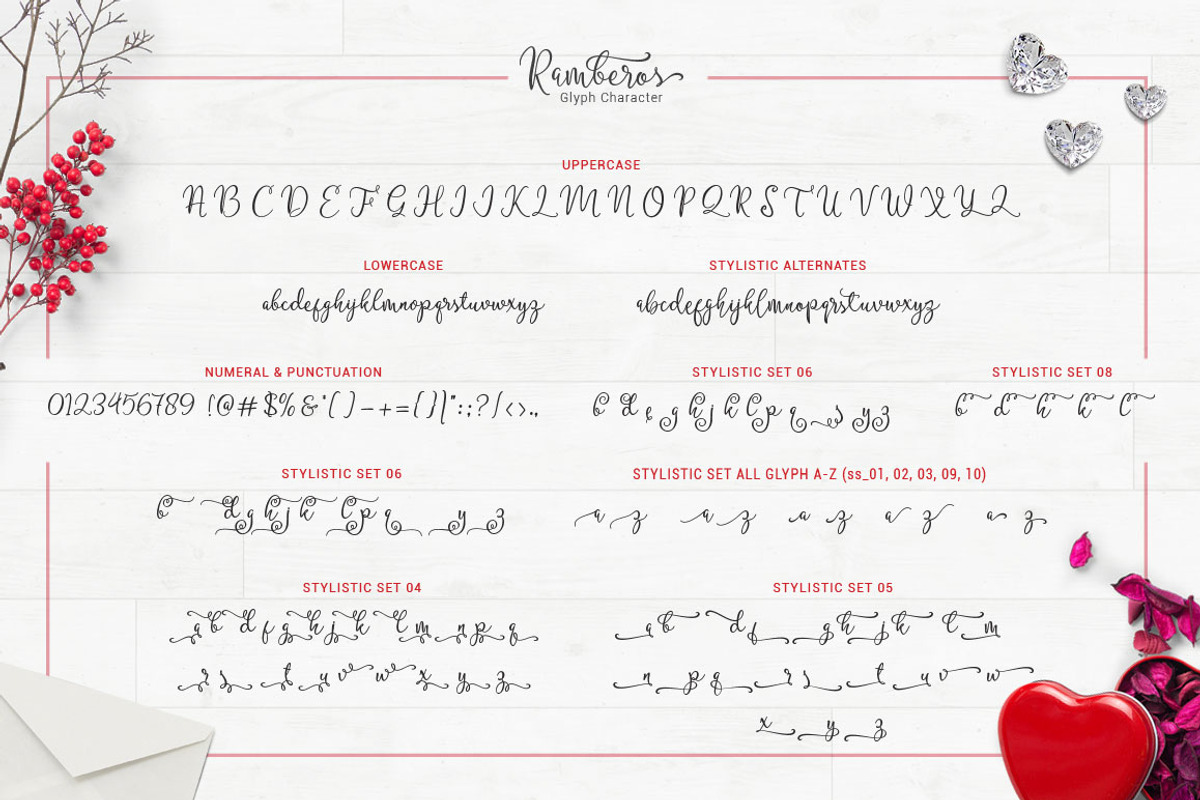 Ramberos
Glyph Character
UPPERCASE
A B C D E F G H I J K L M N O P Q R S T U V W X Y Z
LOWERCASE
abcdefghijklmnopqrstuvwxyz
STYLISTIC ALTERNATES
abcdefghijklmnopqrstuvwxyz
NUMERAL & PUNCTUATION
0123456789 !@#$%&*( )-+={ }|":;?/<>.,
STYLISTIC SET 06
b d f g h j k l p q s y z
STYLISTIC SET 08
b d h k l
STYLISTIC SET 06
b d g h j k l p q y z
STYLISTIC SET ALL GLYPH A-Z (ss_01, 02, 03, 09, 10)
a z a z a z a z a z
STYLISTIC SET 04
a b d f g h j k l m n p q
r s t u v w x y z
STYLISTIC SET 05
a b d f g h j k l m
n p q r s t u v w
x y z